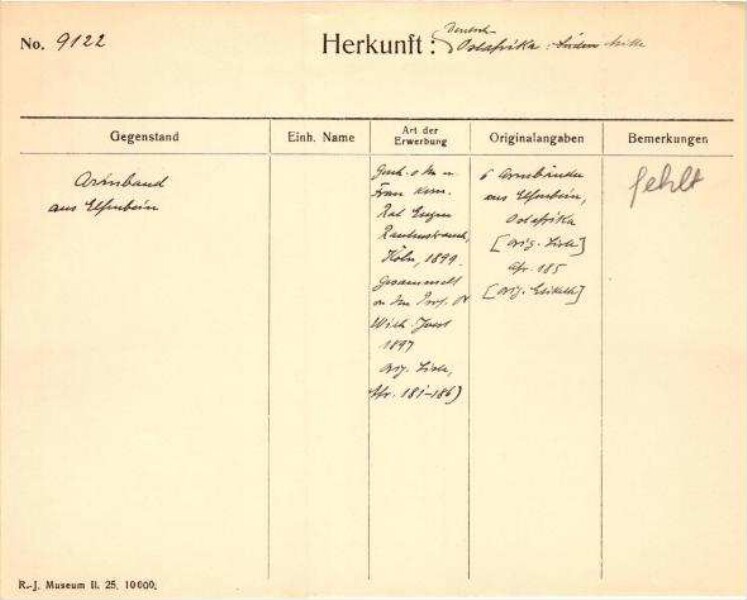 No. 9122
Herkunft: Deutsch-
Ostafrika:
Gegenstand
Einh. Name
Art der
Erwerbung
Originalangaben
Bemerkungen
Armband
aus Elfenbein
Gesch. v. Hn u
Frau Kom.
Rat Eugen
Rautenstrauch,
Köln, 1899.
Gesammelt
v. dem Prof. Dr
Wilh. Joest
1897
orig. Liste,
Afr. 181-186)
6 Armbänder
aus Elfenbein,
Ostafrika
[orig. Liste]
Afr. 185
[orig. Etikett]
fehlt
R.-J. Museum II. 25. 10000.